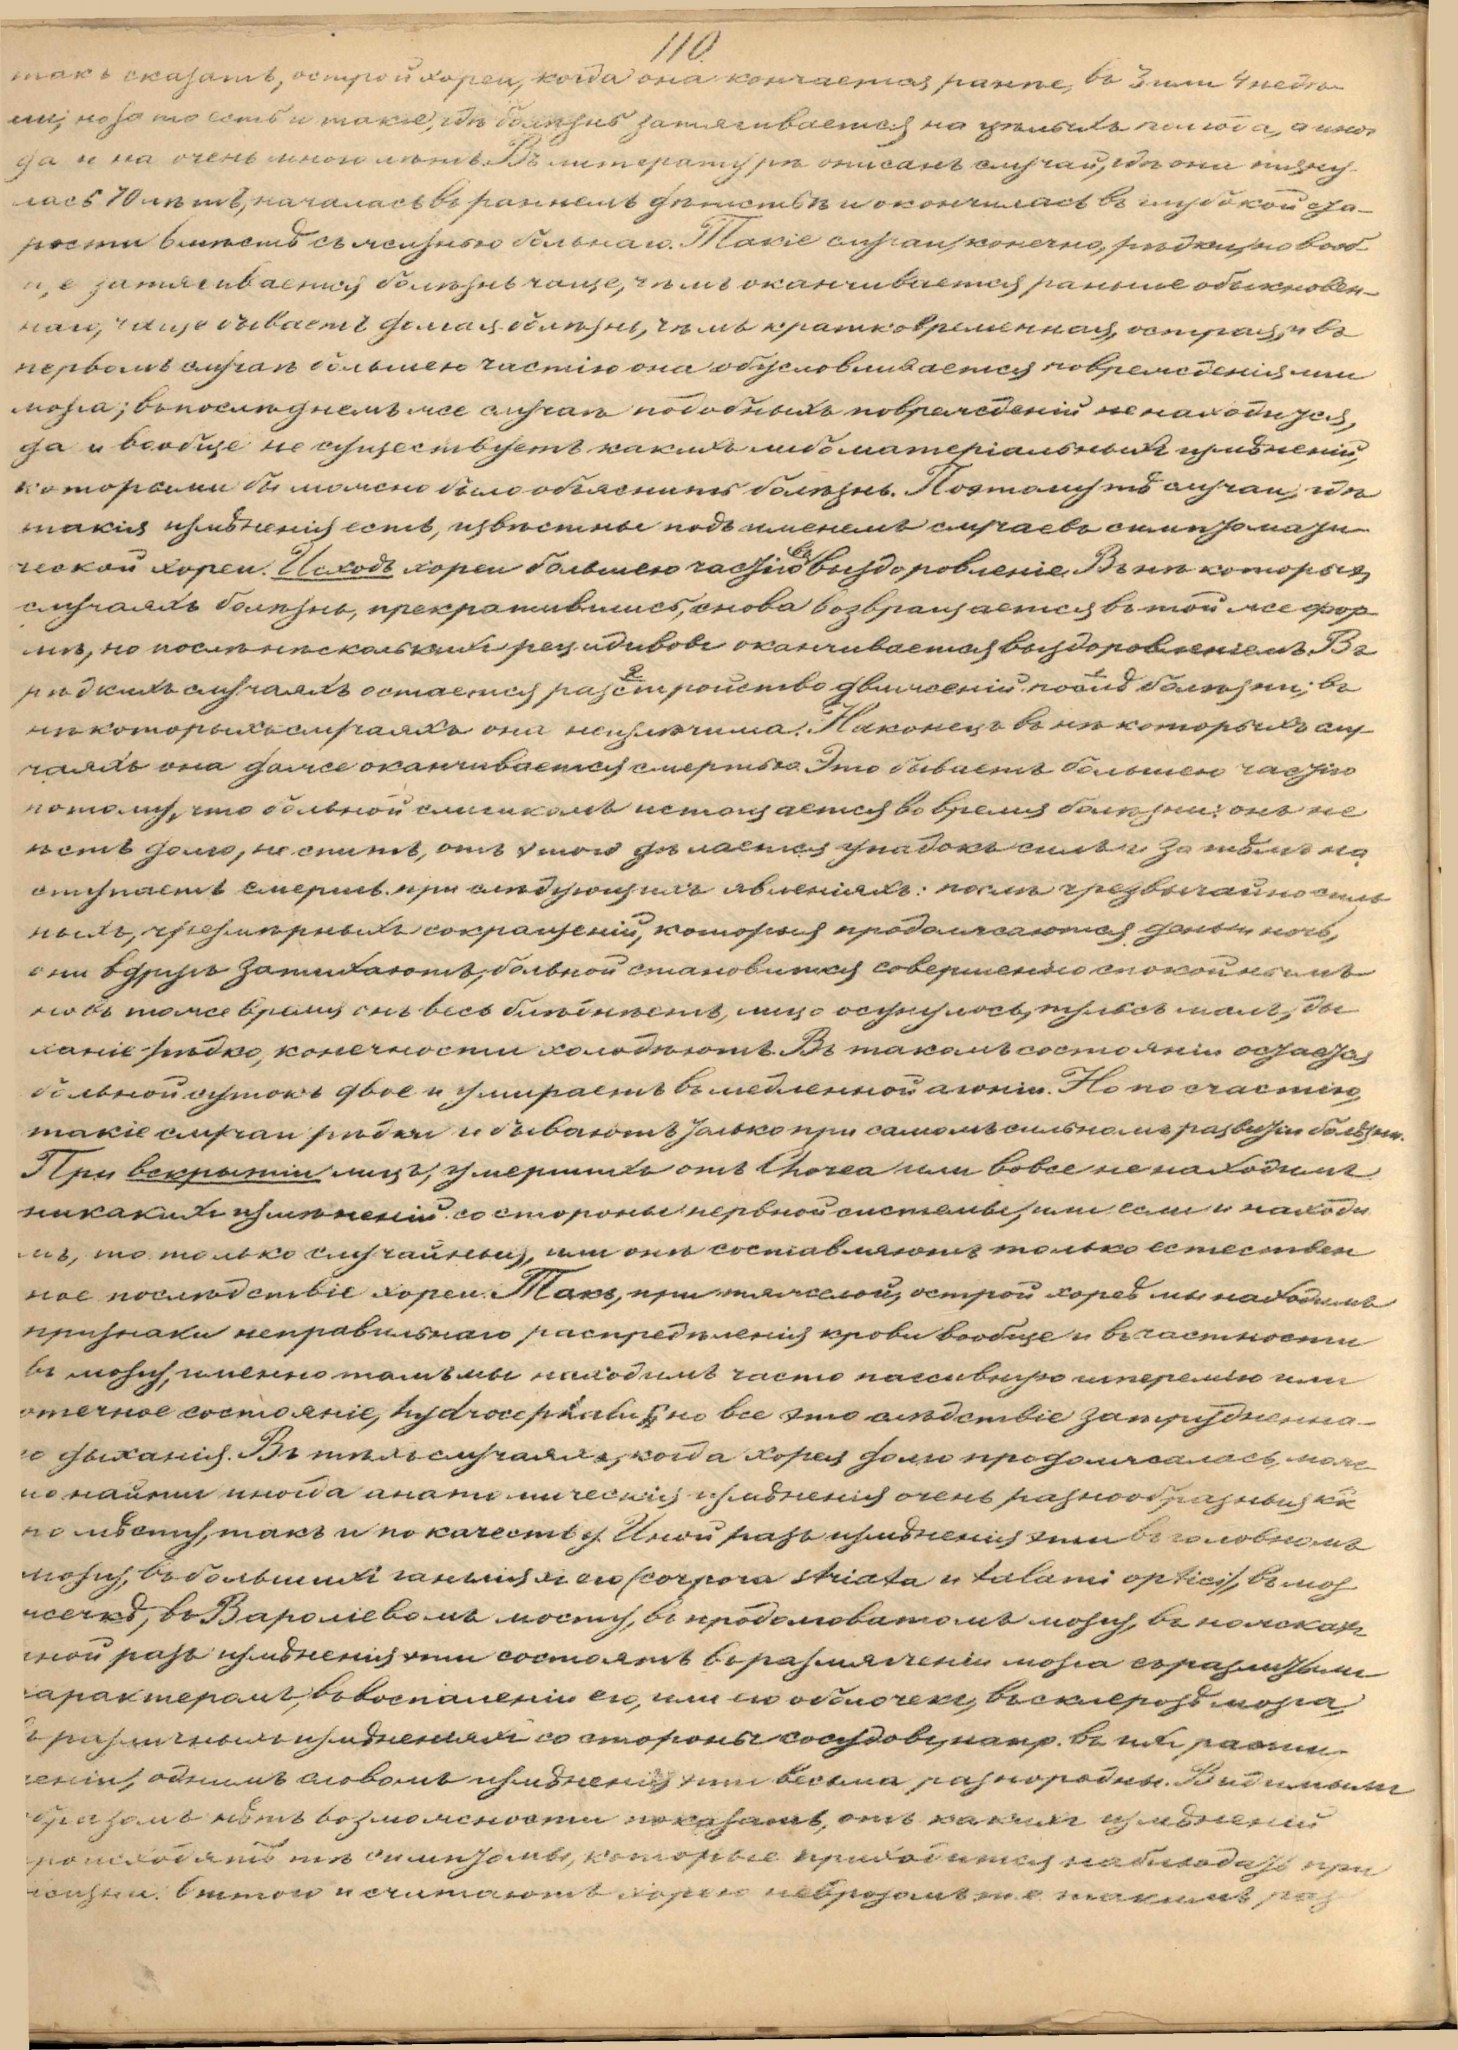 110.
такъ сказать, острой хореи, когда она кончается ранѣе, въ 3 или 4 недѣ-
ли; но за то есть и такіе, гдѣ болѣзнь затягивается на цѣлыхъ полгода, а иног
да и на очень много лѣтъ. Въ литературѣ описанъ случай, гдѣ она тяну-
лась 70 лѣтъ, началась въ раннемъ дѣтствѣ и окончилась въ глубокой ста-
рости вмѣстѣ съ жизнью больнаго. Такіе случаи, конечно, рѣдки, но вооб-
ще затягивается болѣзнь чаще, чѣмъ оканчивается раньше обыкновен-
наго, чаще бываетъ долгая болѣзнь, чѣмъ кратковременная, острая, и въ
первомъ случаѣ большею частію она обусловливается поврежденіями
мозга; въ послѣднемъ же случаѣ подобныхъ поврежденій не находится,
да и вообще не существуетъ какихъ либо матеріальныхъ измѣненій,
которыми бы можно было объяснить болѣзнь. Поэтому тѣ случаи, гдѣ
такія измѣненія есть, извѣстны подъ именемъ случаевъ симптомати-
ческой хореи. Исходъ хореи большею частію въ выздоровленіе. Въ нѣкоторыхъ
случаяхъ болѣзнь, прекратившись, снова возвращается въ той же фор-
мѣ, но послѣ нѣсколькихъ рецидивовъ оканчивается выздоровленіемъ. Въ
рѣдкихъ случаяхъ остается разстройство движеній послѣ болѣзни; въ
нѣкоторыхъ случаяхъ она неизлѣчима. Наконецъ въ нѣкоторыхъ слу-
чаяхъ она даже оканчивается смертью. Это бываетъ большею частію
потому, что больной слишкомъ истощается во время болѣзни: онъ не
ѣстъ долго, не спитъ, отъ этого дѣлается упадокъ силъ и затѣмъ на
ступаетъ смерть при слѣдующихъ явленіяхъ: послѣ чрезвычайно силь
ныхъ, чрезмѣрныхъ сокращеній, которыя продолжаются день и ночь,
они вдругъ затихаютъ, больной становится совершенно спокойнымъ
но въ тоже время онъ весь блѣднѣетъ, лицо осунулось, пульсъ малъ, ды
ханіе рѣдко, конечности холодѣютъ. Въ такомъ состояніи остается
больной сутокъ двое и умираетъ въ медленной агоніи. Но по счастію,
такіе случаи рѣдки и бываютъ только при самомъ сильномъ развитіи болѣзни.
При вскрытіи лицъ, умершихъ отъ Chorea или вовсе не находимъ
никакихъ измѣненій со стороны нервной системы, или если и находи
мъ, то только случайныя, или онѣ составляютъ только естествен
ное послѣдствіе хореи. Такъ, при тяжелой, острой хореѣ мы находимъ
признаки неправильнаго распредѣленія крови вообще и въ частности
въ мозгу, именно тамъ мы находимъ часто пассивную гиперемію или
отечное состояніе, hydrocephalus, но все это слѣдствіе затрудненна-
го дыханія. Въ тѣхъ случаяхъ, когда хорея долго продолжалась, мож-
но найти иногда анатомическія измѣненія очень разнообразныя кк
по мѣсту, такъ и по качеству. Иной разъ измѣненія эти въ головномъ
мозгу, въ большихъ гангліяхъ его (corpora striata и talami optici), въ моз
жечкѣ, въ Вароліевомъ мосту, въ продолговатомъ мозгу, въ ножкахъ
иной разъ измѣненія эти состоятъ въ размягченіи мозга съ различнымъ
характеромъ, въ воспаленіи его, или его оболочекъ, въ склерозѣ мозга,
въ различныхъ измѣненіяхъ со стороны сосудовъ, напр. въ ихъ расши-
реніи, однимъ словомъ измѣненія эти весьма разнородны. Видимымъ
образомъ нѣтъ возможности показать, отъ какихъ измѣненій
происходятъ тѣ симптомы, которые приходится наблюдать при
жизни. Оттого и считаютъ хорею неврозомъ т.е. такимъ раз